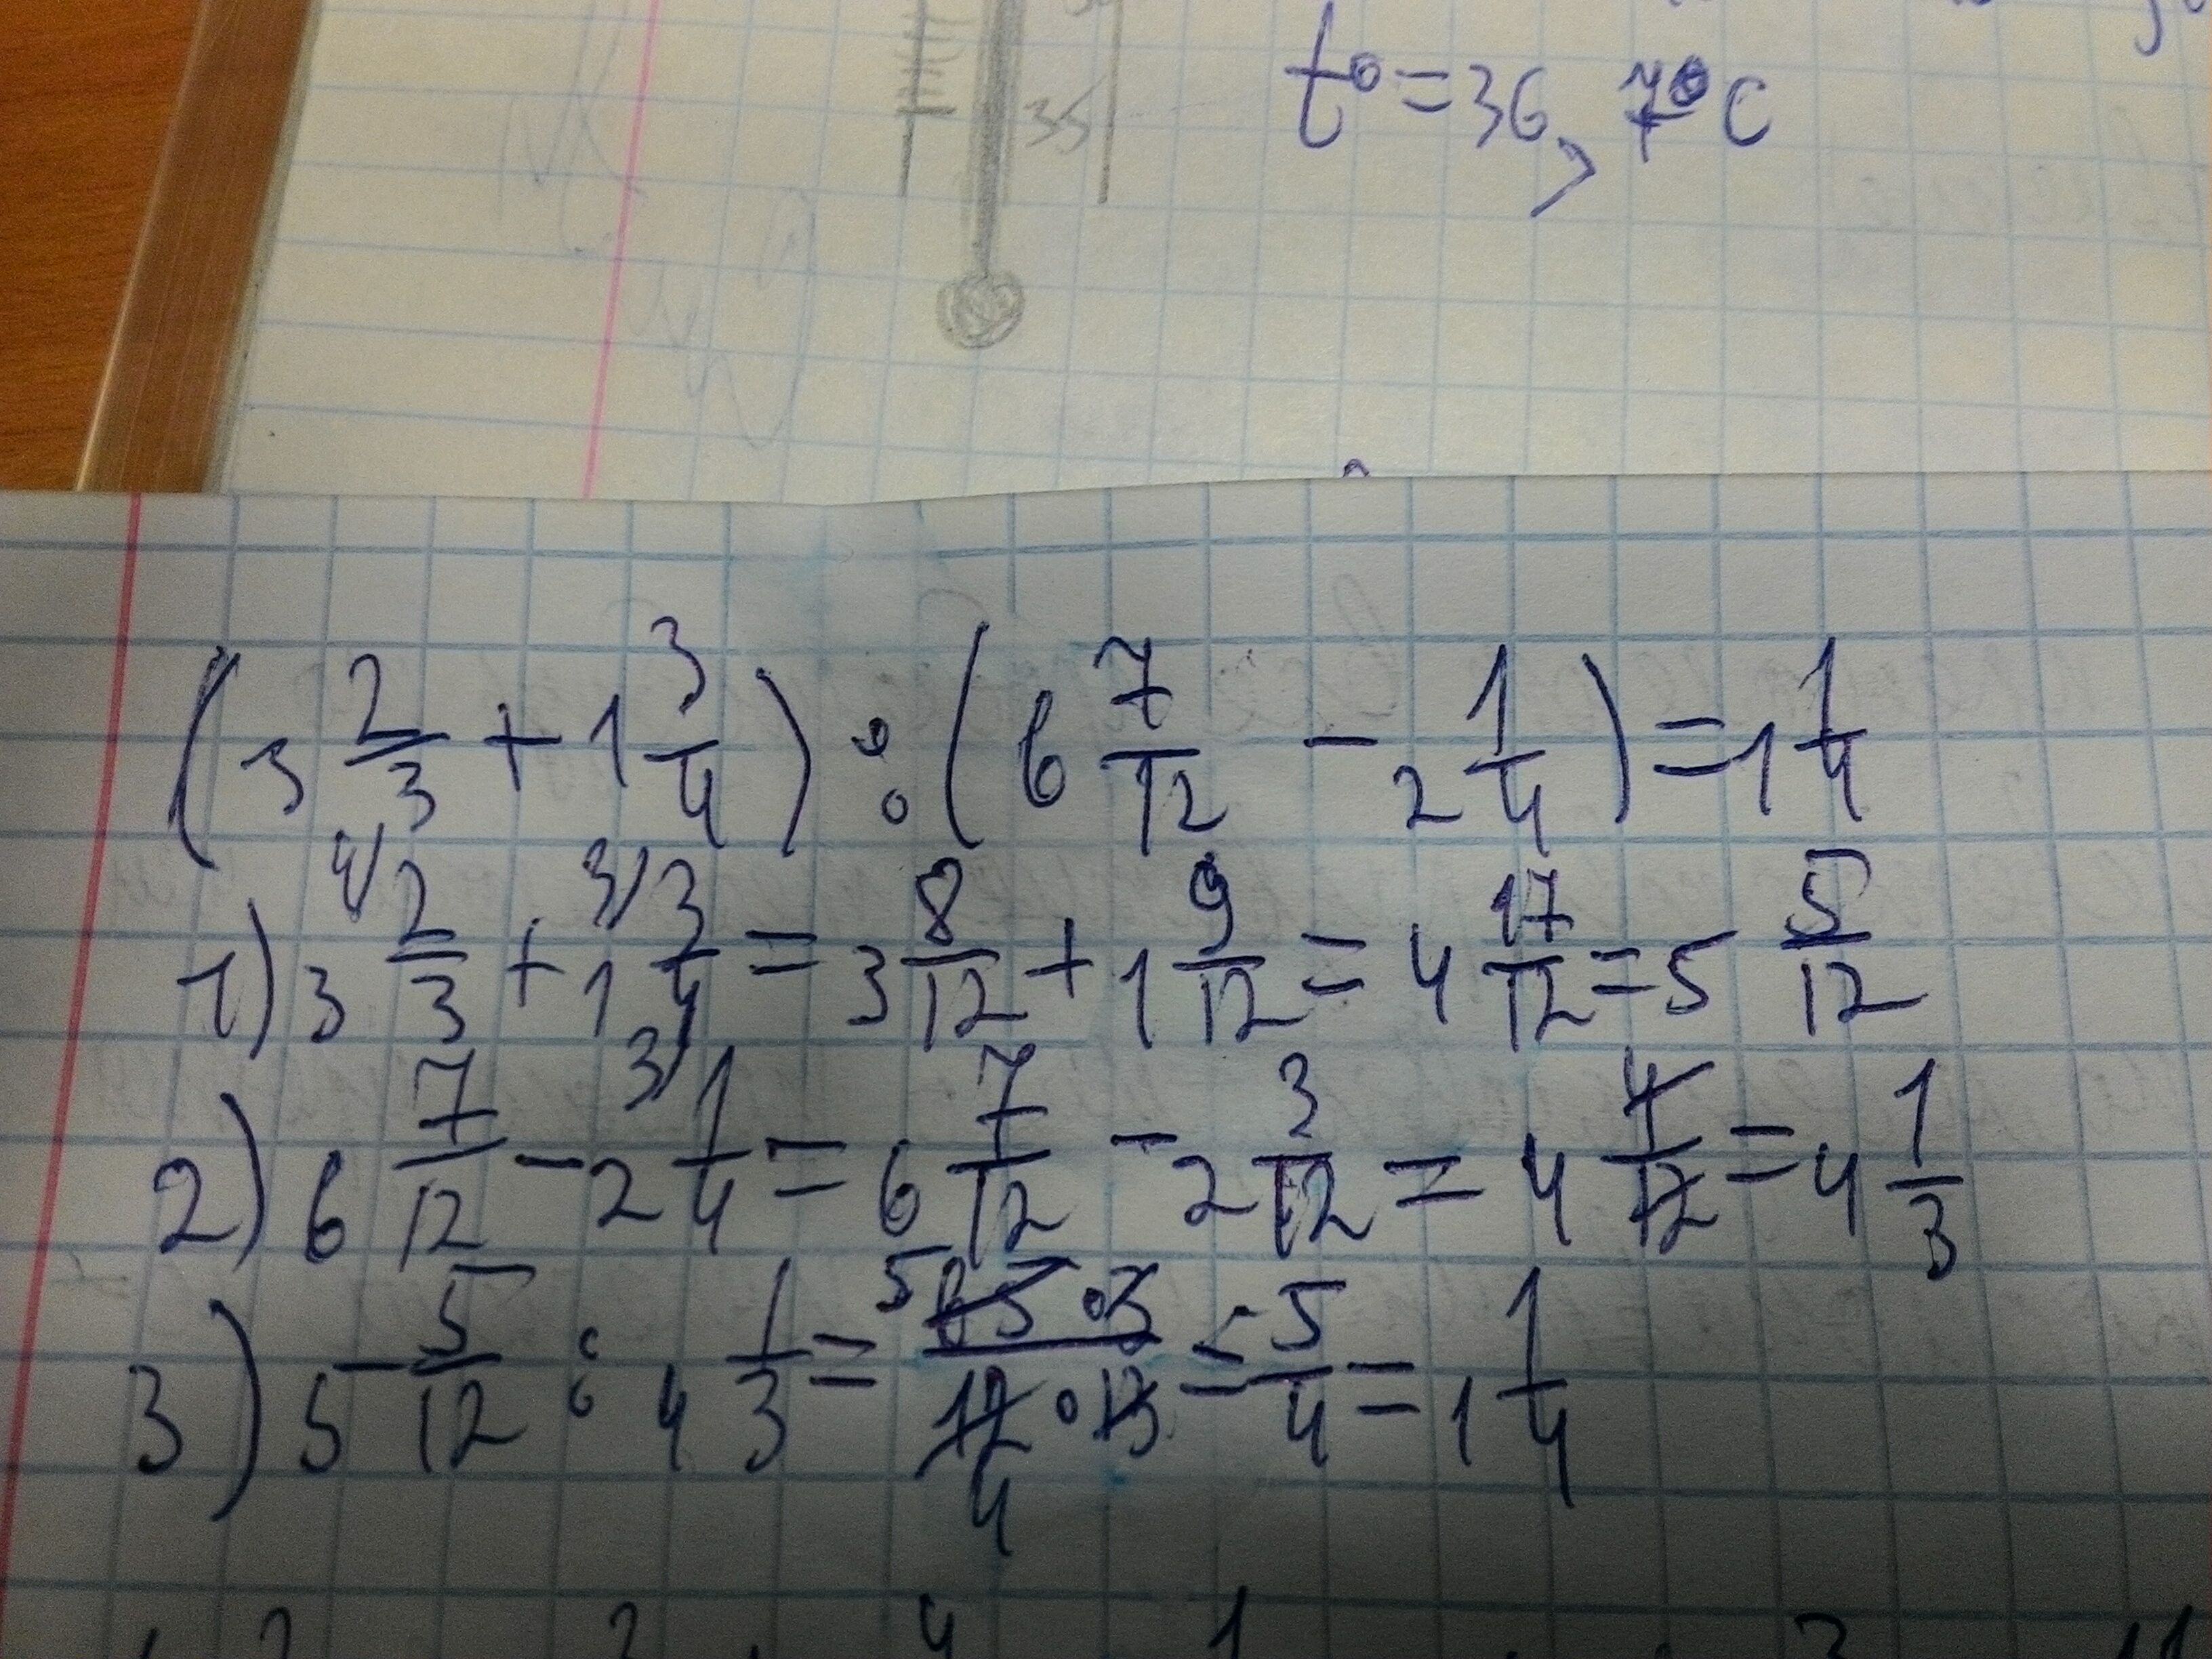 35
t° = 36,7°C
(3 2/3 + 1 3/4) : (6 7/12 - 2 1/4) = 1 1/4
1) 3 4/ 2/3 + 1 3/ 3/4 = 3 8/12 + 1 9/12 = 4 17/12 = 5 5/12
2) 6 7/12 - 2 3/ 1/4 = 6 7/12 - 2 3/12 = 4 4/12 = 4 1/3
3) 5 5/12 : 4 1/3 = 5 65 · 3 / 12 · 13 4 = 5/4 = 1 1/4